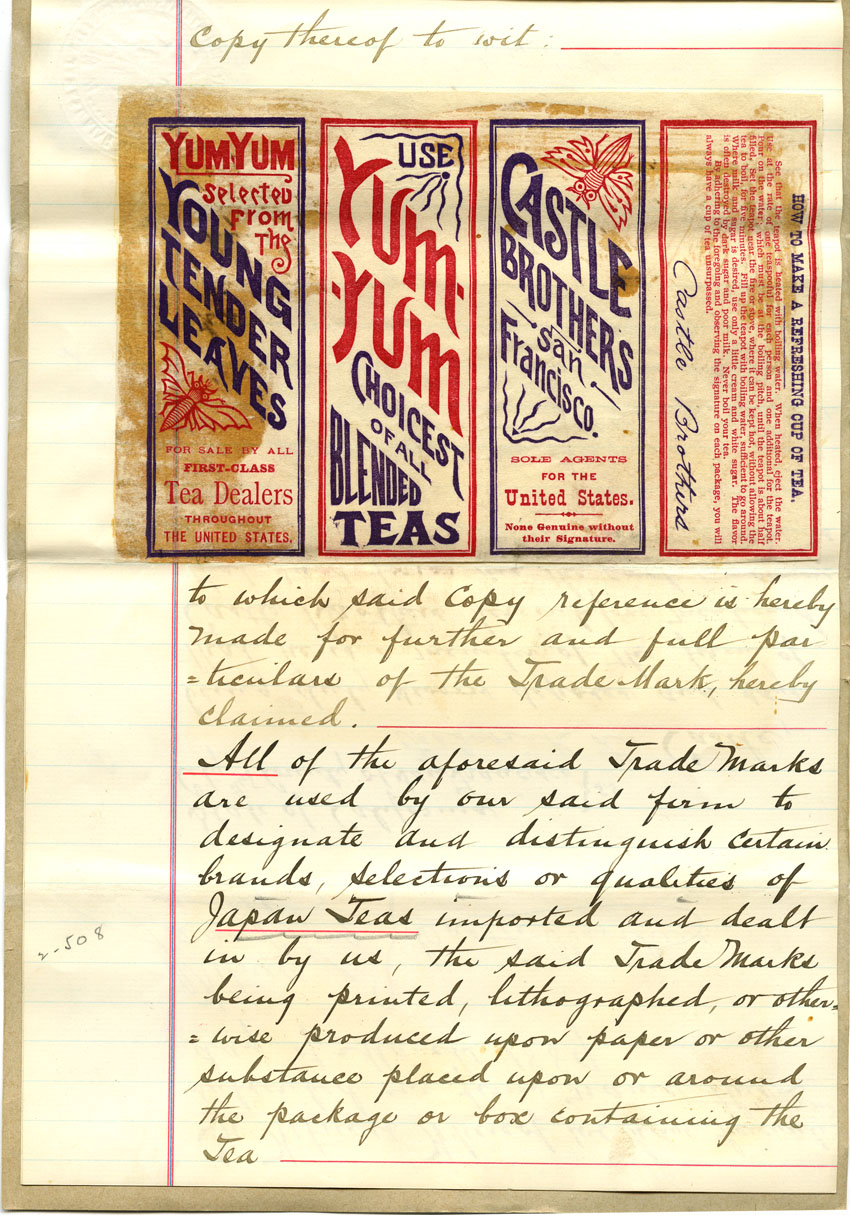 Copy thereof to wit:
YUM-YUM
Selected
From
The
YOUNG
TENDER
LEAVES
FOR SALE BY ALL
FIRST-CLASS
Tea Dealers
THROUGHOUT
THE UNITED STATES.
USE
YUM-
-YUM
CHOICEST
OF ALL
BLENDED
TEAS
CASTLE
BROTHERS
San
Francisco.
SOLE AGENTS
FOR THE
United States.
None Genuine without
their Signature.
HOW TO MAKE A REFRESHING CUP OF TEA.
See that the teapot is heated with boiling water. When heated, eject the water.
Use at the rate of one teaspoonful for each person and one additional for the teapot.
Pour on the water, which must be at the boiling pitch, until the teapot is about half
filled. Set the teapot near the fire or stove, where it can be kept hot, without allowing the
tea to boil, for five minutes. Fill up the teapot with boiling water, sufficient to go around.
Where milk and sugar is desired, use only a little cream and white sugar. The flavor
is often destroyed by dark sugar and poor milk. Never boil your tea.
By adhering to the foregoing and observing the signature on each package, you will
always have a cup of tea unsurpassed.
Castle Brothers
to which said Copy reference is hereby
made for further and full par
=ticulars of the Trade Mark, hereby
claimed.
All of the aforesaid Trade Marks
are used by our said firm to
designate and distinguish certain
brands, selections or qualities of
Japan Teas imported and dealt
in by us, the said Trade Marks
being printed, lithographed, or other=
=wise produced upon paper or other
substance placed upon or around
the package or box containing the
Tea
2-508